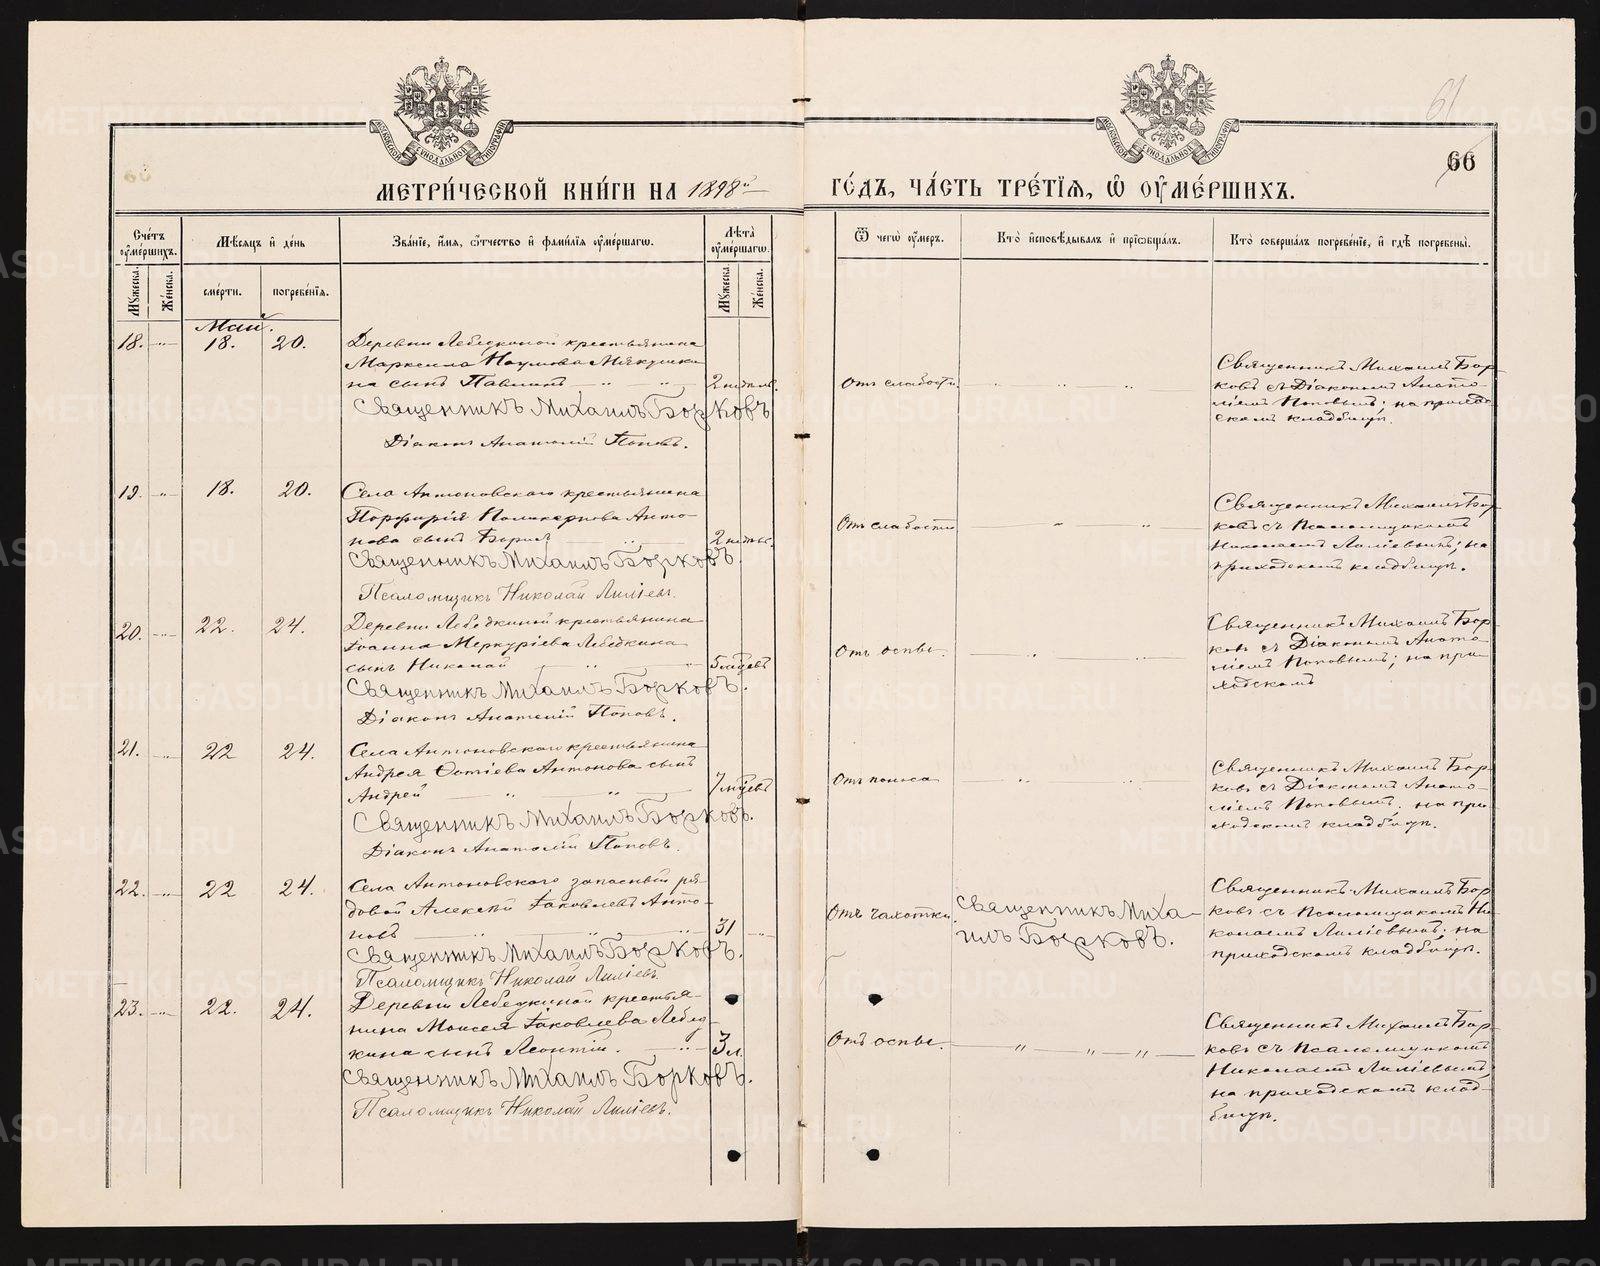 61
66
МЕТРИ́ЧЕСКОЙ КНИ́ГИ НА 1898й ГО́ДЪ, ЧА́СТЬ ТРЕ́ТІЯ, Ѡ҆ ОУ҆МЕ́РШИХЪ.
Сче́тъ оу҆ме́ршихъ.
Мꙋ́жеска.
Же́нска.
Мѣ́сяцъ и҆ де́нь
сме́рти.
погребе́нїя.
Зва́нїе, и҆́мя, ѻ҆́тчество и҆ фами́лїя оу҆ме́ршагѡ.
Лѣ́та оу҆ме́ршагѡ.
Мꙋ́жеска.
Же́нска.
Ѿ чегѡ̀ оу҆́меръ.
Кто̀ и҆сповѣ́дывалъ и҆ прїѡбща́лъ.
Кто̀ соверша́лъ погребе́нїе, и҆ гдѣ̀ погребены̀.
Маи.
18. 18. 20.
Деревни Лебедкиной крестьянина
Маркелла Наумова Мякушки
на сынъ Павлинъ
2 недѣль
Священникъ Михаилъ Борковъ
Діаконъ Анатолій Поповъ.
Отъ слабости
Священникъ Михаилъ Бор
ковъ съ Діакономъ Анато
ліемъ Поповымъ; на приход
скомъ кладбищѣ.
19. 18. 20.
Села Антоновскаго крестьянина
Порфирія Поликарпова Анто
нова сынъ Борисъ
2 недѣл.
Священникъ Михаилъ Борковъ.
Псаломщикъ Николай Лиліевъ.
Отъ слабости
Священникъ Михаилъ Бор
ковъ съ Псаломщикомъ
Николаемъ Лиліевымъ; на
приходскомъ кладбищѣ.
20. 22. 24.
Деревни Лебедкиной крестьянина
Іоанна Меркуріева Лебедкина
сынъ Николай
5 мѣсцевъ
Священникъ Михаилъ Борковъ.
Діаконъ Анатолій Поповъ.
Отъ оспы.
Священникъ Михаилъ Бор
ковъ съ Діакономъ Анато
ліемъ Поповымъ; на при
ходскомъ
21. 22 24.
Села Антоновскаго крестьянина
Андрея Фотіева Антонова сынъ
Андрей
7 мѣсцевъ
Священникъ Михаилъ Борковъ.
Діаконъ Анатолій Поповъ.
Отъ поноса
Священникъ Михаилъ Бор
ковъ съ Діакономъ Анато
ліемъ Поповымъ. на при
ходскомъ кладбищѣ.
22. 22 24.
Села Антоновскаго запасный ря
довой Алексѣй Іаковлевъ Анто
новъ
31
Священникъ Михаилъ Борковъ.
Псаломщикъ Николай Лиліевъ.
Отъ чахотки.
Священникъ Миха
илъ Борковъ.
Священникъ Михаилъ Бор
ковъ съ Псаломщикомъ Ни
колаемъ Лиліевымъ; на
приходскомъ кладбищѣ.
23. 22. 24.
Деревни Лебедкиной крестья
нина Моисея Іаковлева Лебед
кина сынъ Леонтій.
3 л.
Священникъ Михаилъ Борковъ.
Псаломщикъ Николай Лиліевъ.
Отъ оспы.
Священникъ Михаилъ Бор
ковъ съ Псаломщикомъ
Николаемъ Лиліевымъ;
на приходскомъ клад
бищѣ.
METRIKI.GASO-URAL.RU